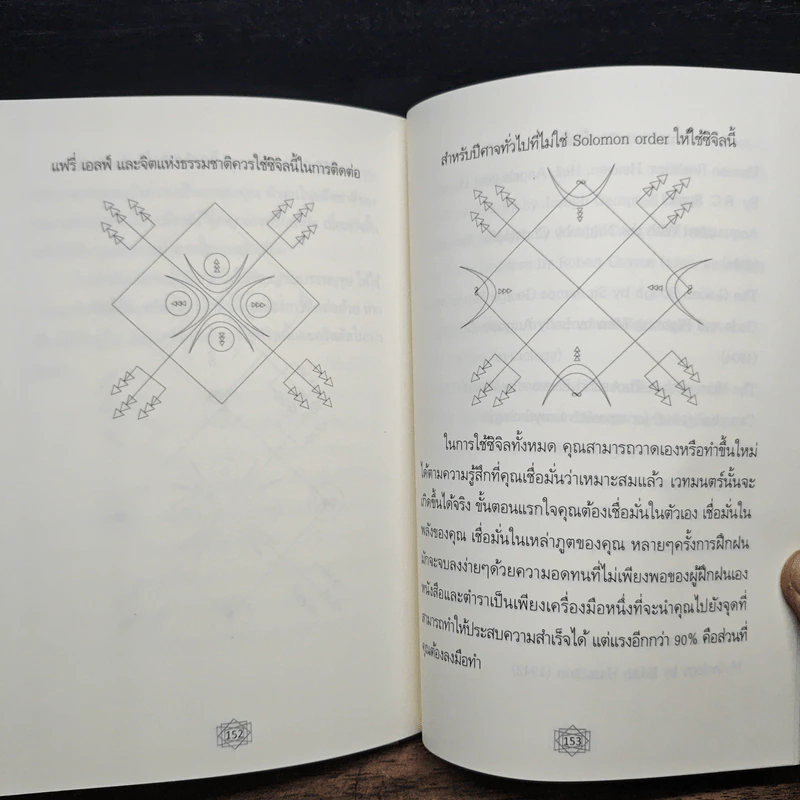 แฟรี่ เอลฟ์ และจิตแห่งธรรมชาติควรใช้ซิจิลนี้ในการติดต่อ
152
สำหรับปีศาจทั่วไปที่ไม่ใช่ Solomon order ให้ใช้ซิจิลนี้
ในการใช้ซิจิลทั้งหมด คุณสามารถวาดเองหรือทำขึ้นใหม่
ได้ตามความรู้สึกที่คุณเชื่อมั่นว่าเหมาะสมแล้ว เวทมนตร์นั้นจะ
เกิดขึ้นได้จริง ขั้นตอนแรกใจคุณต้องเชื่อมั่นในตัวเอง เชื่อมั่นใน
พลังของคุณ เชื่อมั่นในเหล่าภูตของคุณ หลายๆครั้งการฝึกฝน
มักจะจบลงง่ายๆด้วยความอดทนที่ไม่เพียงพอของผู้ฝึกฝนเอง
หนังสือและตำราเป็นเพียงเครื่องมือหนึ่งที่จะนำคุณไปยังจุดที่
สามารถทำให้ประสบความสำเร็จได้ แต่แรงอีกกว่า 90% คือส่วนที่
คุณต้องลงมือทำ
153